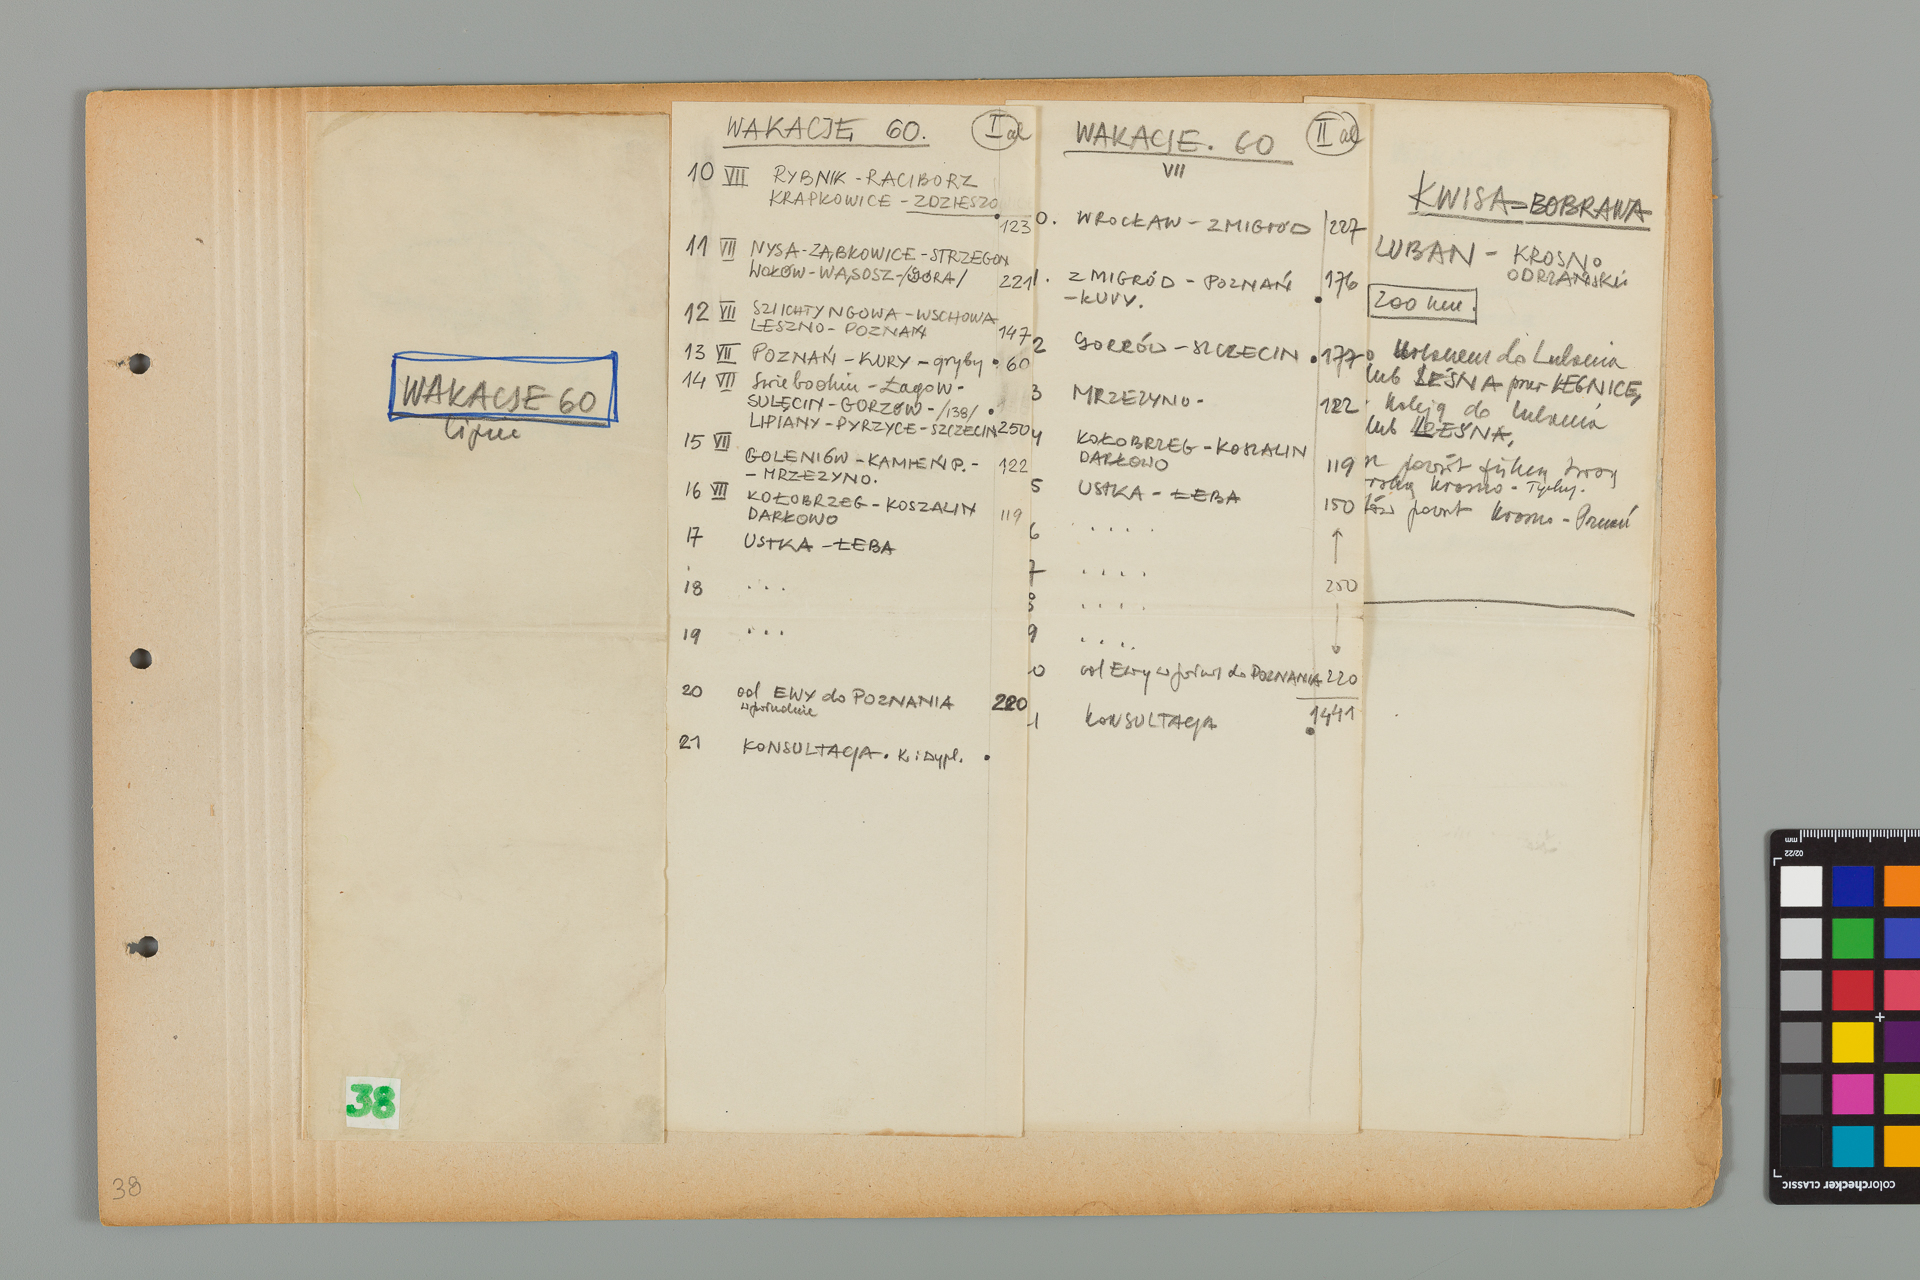 WAKACJE 60
lipiec
38
38
WAKACJE 60. I al
10 VII RYBNIK - RACIBORZ
KRAPKOWICE - ZDZIESZO
123
11 VII NYSA - ZĄBKOWICE - STRZEGOM
WOŁÓW - WĄSOSZ - /GÓRA/ 221
12 VII SZLICHTYNGOWA - WSCHOWA
LESZNO - POZNAŃ 147
13 VII POZNAŃ - KURY - gryby • 60
14 VII Świebodzin - Łagów -
SULĘCIN - GORZÓW - /138/ •
LIPIANY - PYRZYCE - SZCZECIN 250
15 VII
GOLENIÓW - KAMIEŃ P. - 122
- MRZEŻYNO.
16 VII KOŁOBRZEG - KOSZALIN
DARŁOWO 119
17 USTKA - ŁEBA
18 . . .
19 . . .
20 od EWY do POZNANIA 220
w południe
21 KONSULTACJA. K. i dypl. •
WAKACJE. 60 II al
VII
0. WROCŁAW - ZMIGRÓD 227
1. ZMIGRÓD - POZNAŃ 176
- KURY. •
2 GORZÓW - SZCZECIN • 177
3 MRZEŻYNO - 122
4 KOŁOBRZEG - KOSZALIN
DARŁOWO 119
5 USTKA - ŁEBA 150
6 . . . .
7 . . . .
250
8 . . . .
9 . . . .
0 od Ewy w do POZNANIA 220
1441
1 KONSULTACJA •
KWISA = BOBRAWA
LUBAN - KROSNO
ODRZAŃSKIE
200 km.
do Lubania
lub LEŚNA przez LEGNICE,
Koleją do Lubania
lub LEŚNA,
Krosno - Tychy.
Krosno - Poznań
mm
02/22
colorchecker CLASSIC